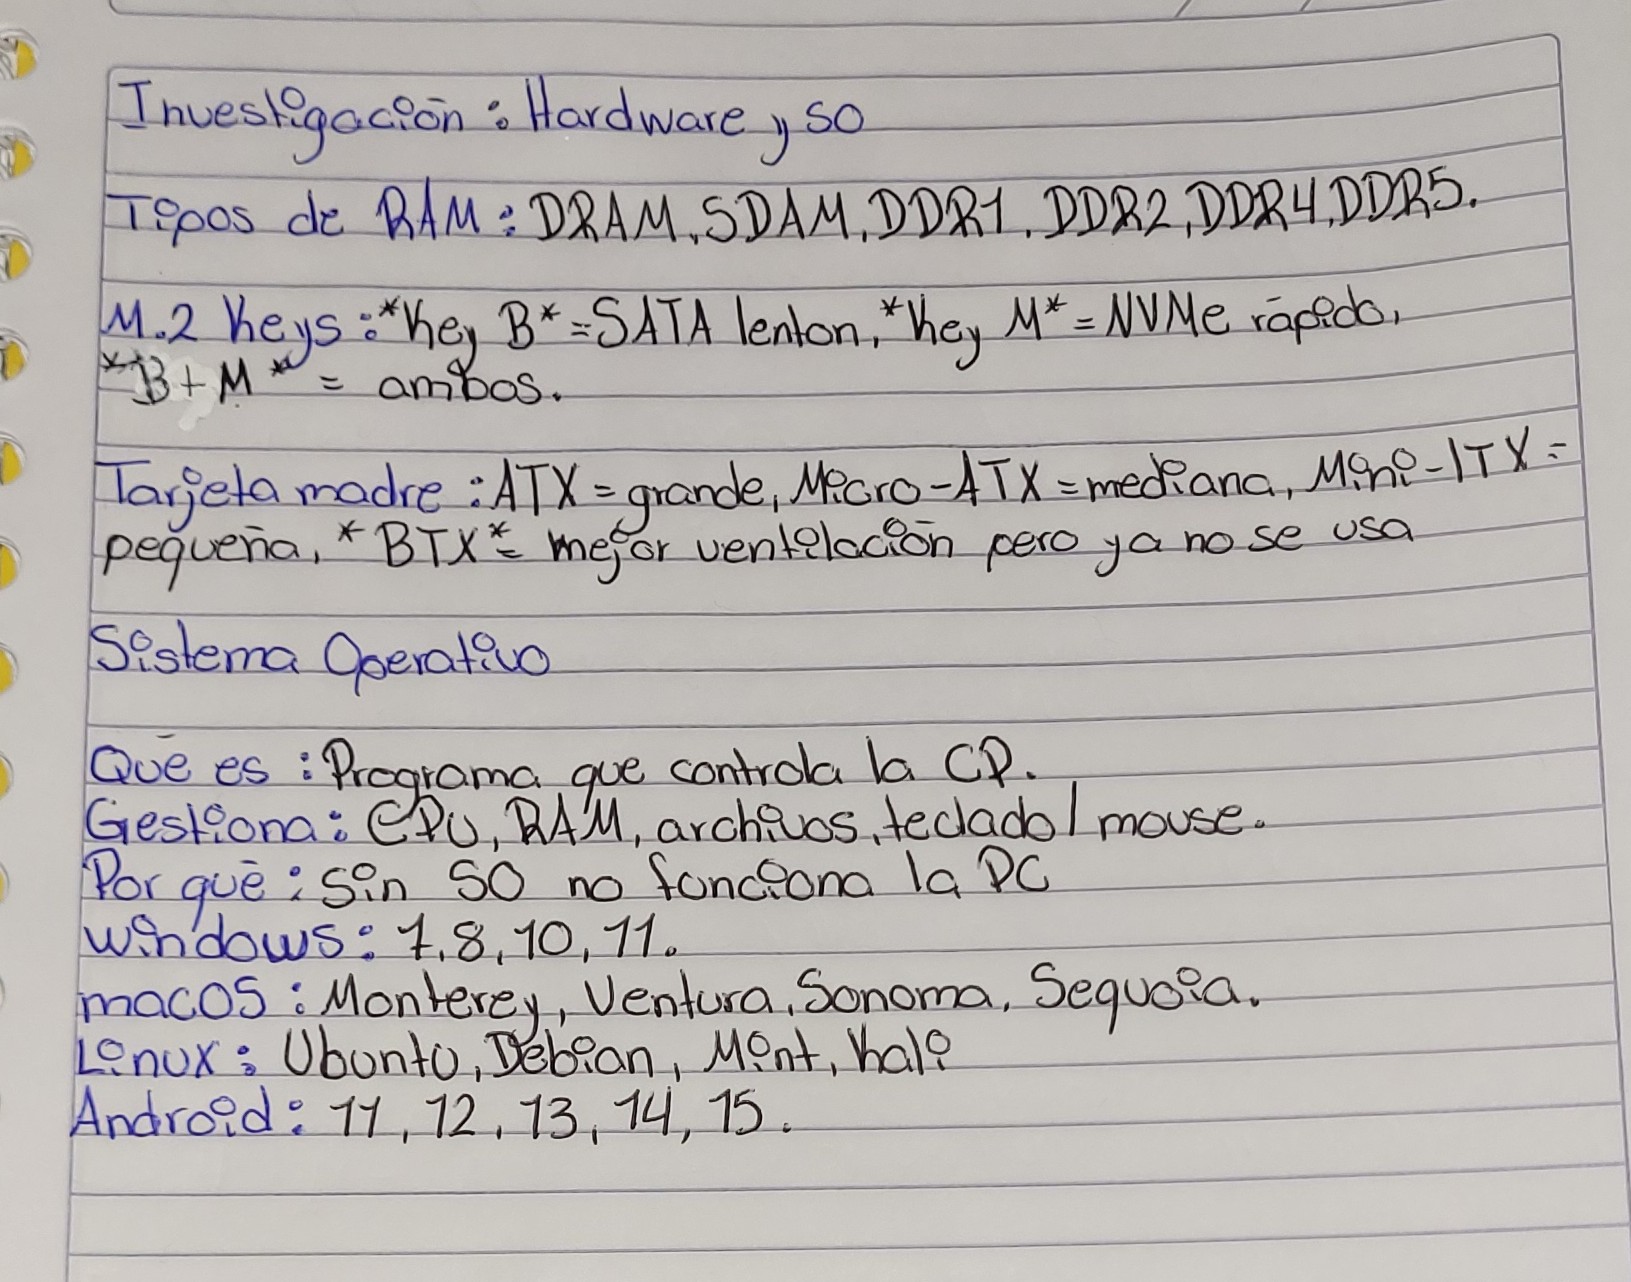 Investigación: Hardware y SO
Tipos de RAM: DRAM, SDAM, DDR1, DDR2, DDR4, DDR5.
M.2 Keys: *Key B* = SATA lenton, *Key M* = NVMe rápido,
*B+M* = ambos.
Tarjeta madre: ATX = grande, Micro-ATX = mediana, Mini-ITX =
pequeña, *BTX* = mejor ventilación pero ya no se usa
Sistema Operativo
Qué es: Programa que controla la CP.
Gestiona: CPU, RAM, archivos, teclado/mouse.
Por qué: Sin SO no funciona la PC
Windows: 7, 8, 10, 11.
macOS: Monterey, Ventura, Sonoma, Sequoia.
Linux: Ubuntu, Debian, Mint, Kali
Android: 11, 12, 13, 14, 15.